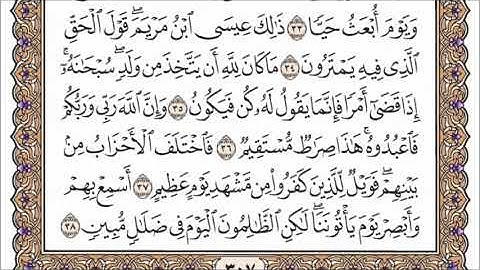 وَيَوْمَ أُبْعَثُ حَيًّا ٣٣ ذَٰلِكَ عِيسَى ابْنُ مَرْيَمَ ۖ قَوْلَ الْحَقِّ
الَّذِي فِيهِ يَمْتَرُونَ ٣٤ مَا كَانَ لِلَّهِ أَن يَتَّخِذَ مِن وَلَدٍ ۖ سُبْحَانَهُ ۚ
إِذَا قَضَىٰ أَمْرًا فَإِنَّمَا يَقُولُ لَهُ كُن فَيَكُونُ ٣٥ وَإِنَّ اللَّهَ رَبِّي وَرَبُّكُمْ
فَاعْبُدُوهُ ۚ هَٰذَا صِرَاطٌ مُّسْتَقِيمٌ ٣٦ فَاخْتَلَفَ الْأَحْزَابُ مِن
بَيْنِهِمْ ۖ فَوَيْلٌ لِّلَّذِينَ كَفَرُوا مِن مَّشْهَدِ يَوْمٍ عَظِيمٍ ٣٧ أَسْمِعْ بِهِمْ
وَأَبْصِرْ يَوْمَ يَأْتُونَنَا ۖ لَٰكِنِ الظَّالِمُونَ الْيَوْمَ فِي ضَلَالٍ مُّبِينٍ ٣٨
٣٠٧